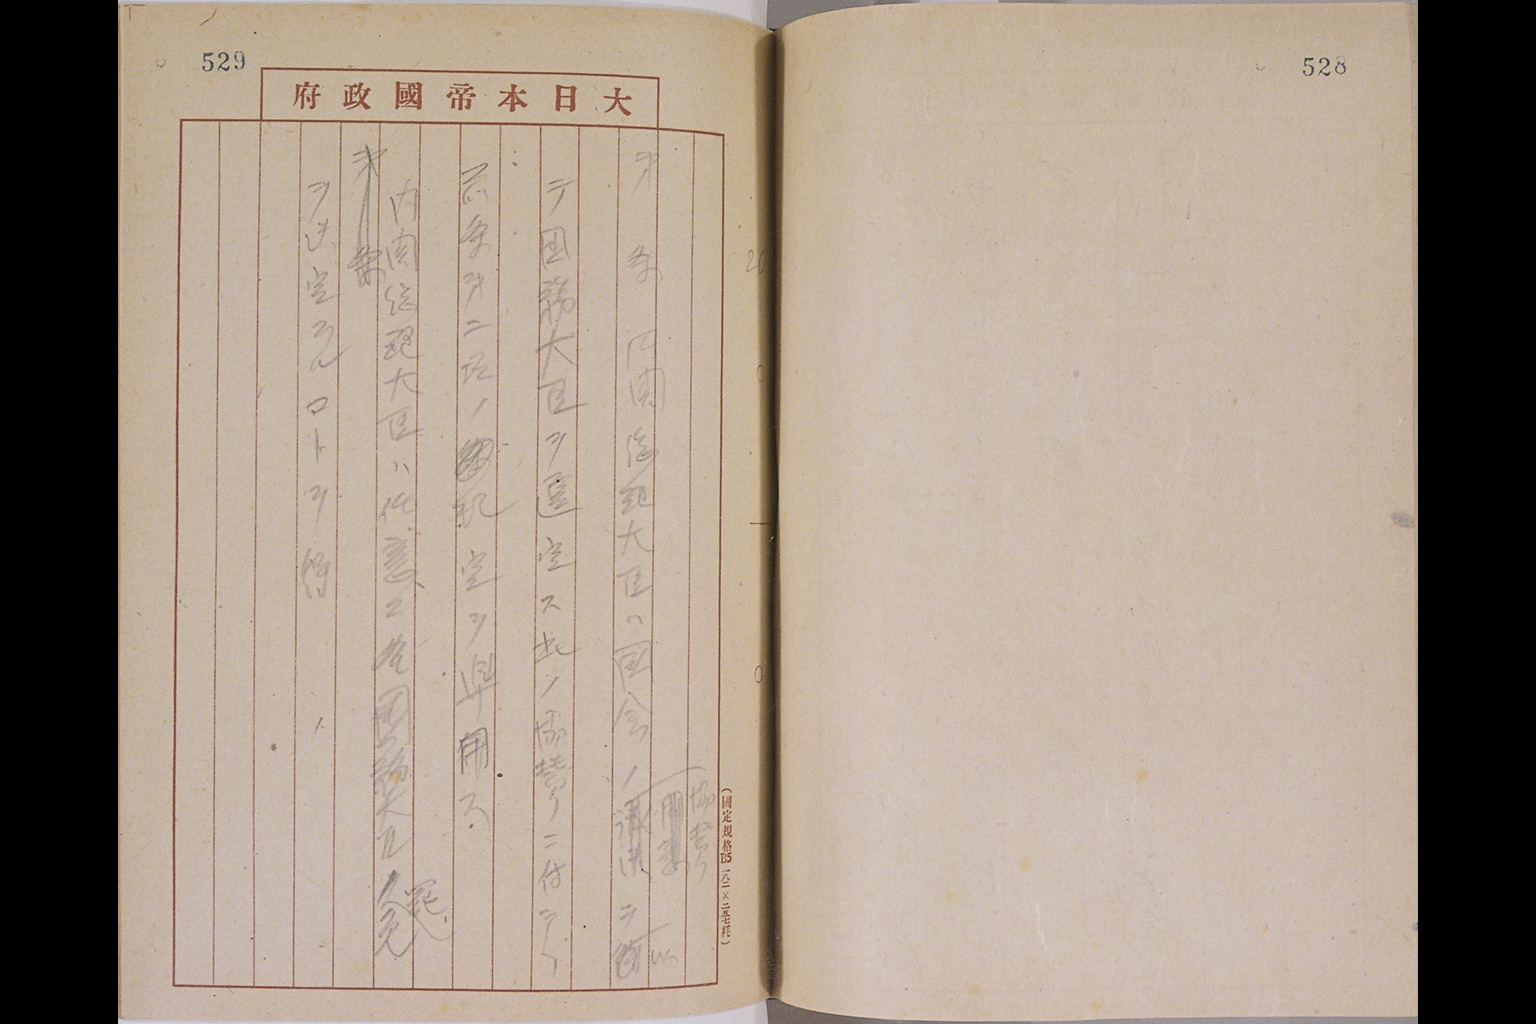 528
529
大日本帝國政府
第 条 内閣総理大臣ハ国会ノ
協賛
ヲ 以
テ国務大臣ヲ選定ス此ノ協賛ニ付テハ
前条第二項ノ規定ヲ準用ス
内閣総理大臣ハ任意ニ各国務大臣ノ罷免
第 条
ヲ決定スルコトヲ得
(國定規格B5 一八二×二五七粍)